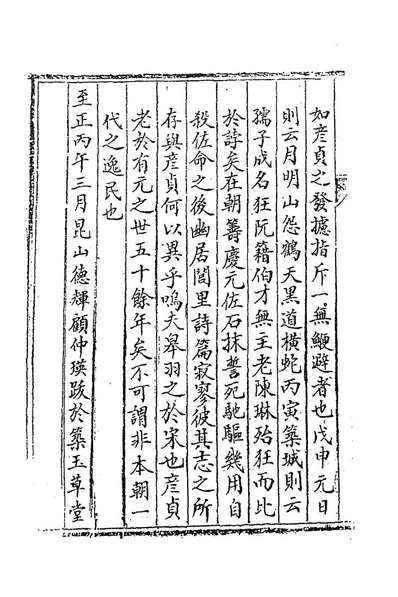 如彦貞之發攄指斥一無鯁避者也戊申元日
則云月明山怨鶴天黑道横蛇丙寅築城則云
孺子成名狂阮籍伯才無主老陳琳殆狂而比
於誖矣在朝籌慶元佐石抹誓死馳驅幾用自
殺佐命之後幽居閭里詩篇寂寥彼其志之所
存與彦貞何以異乎嗚夫皋羽之於宋也彦貞
老於有元之世五十餘年矣不可謂非本朝一
代之逸民也
至正丙午三月昆山德輝顧仲瑛跋於築玉草堂